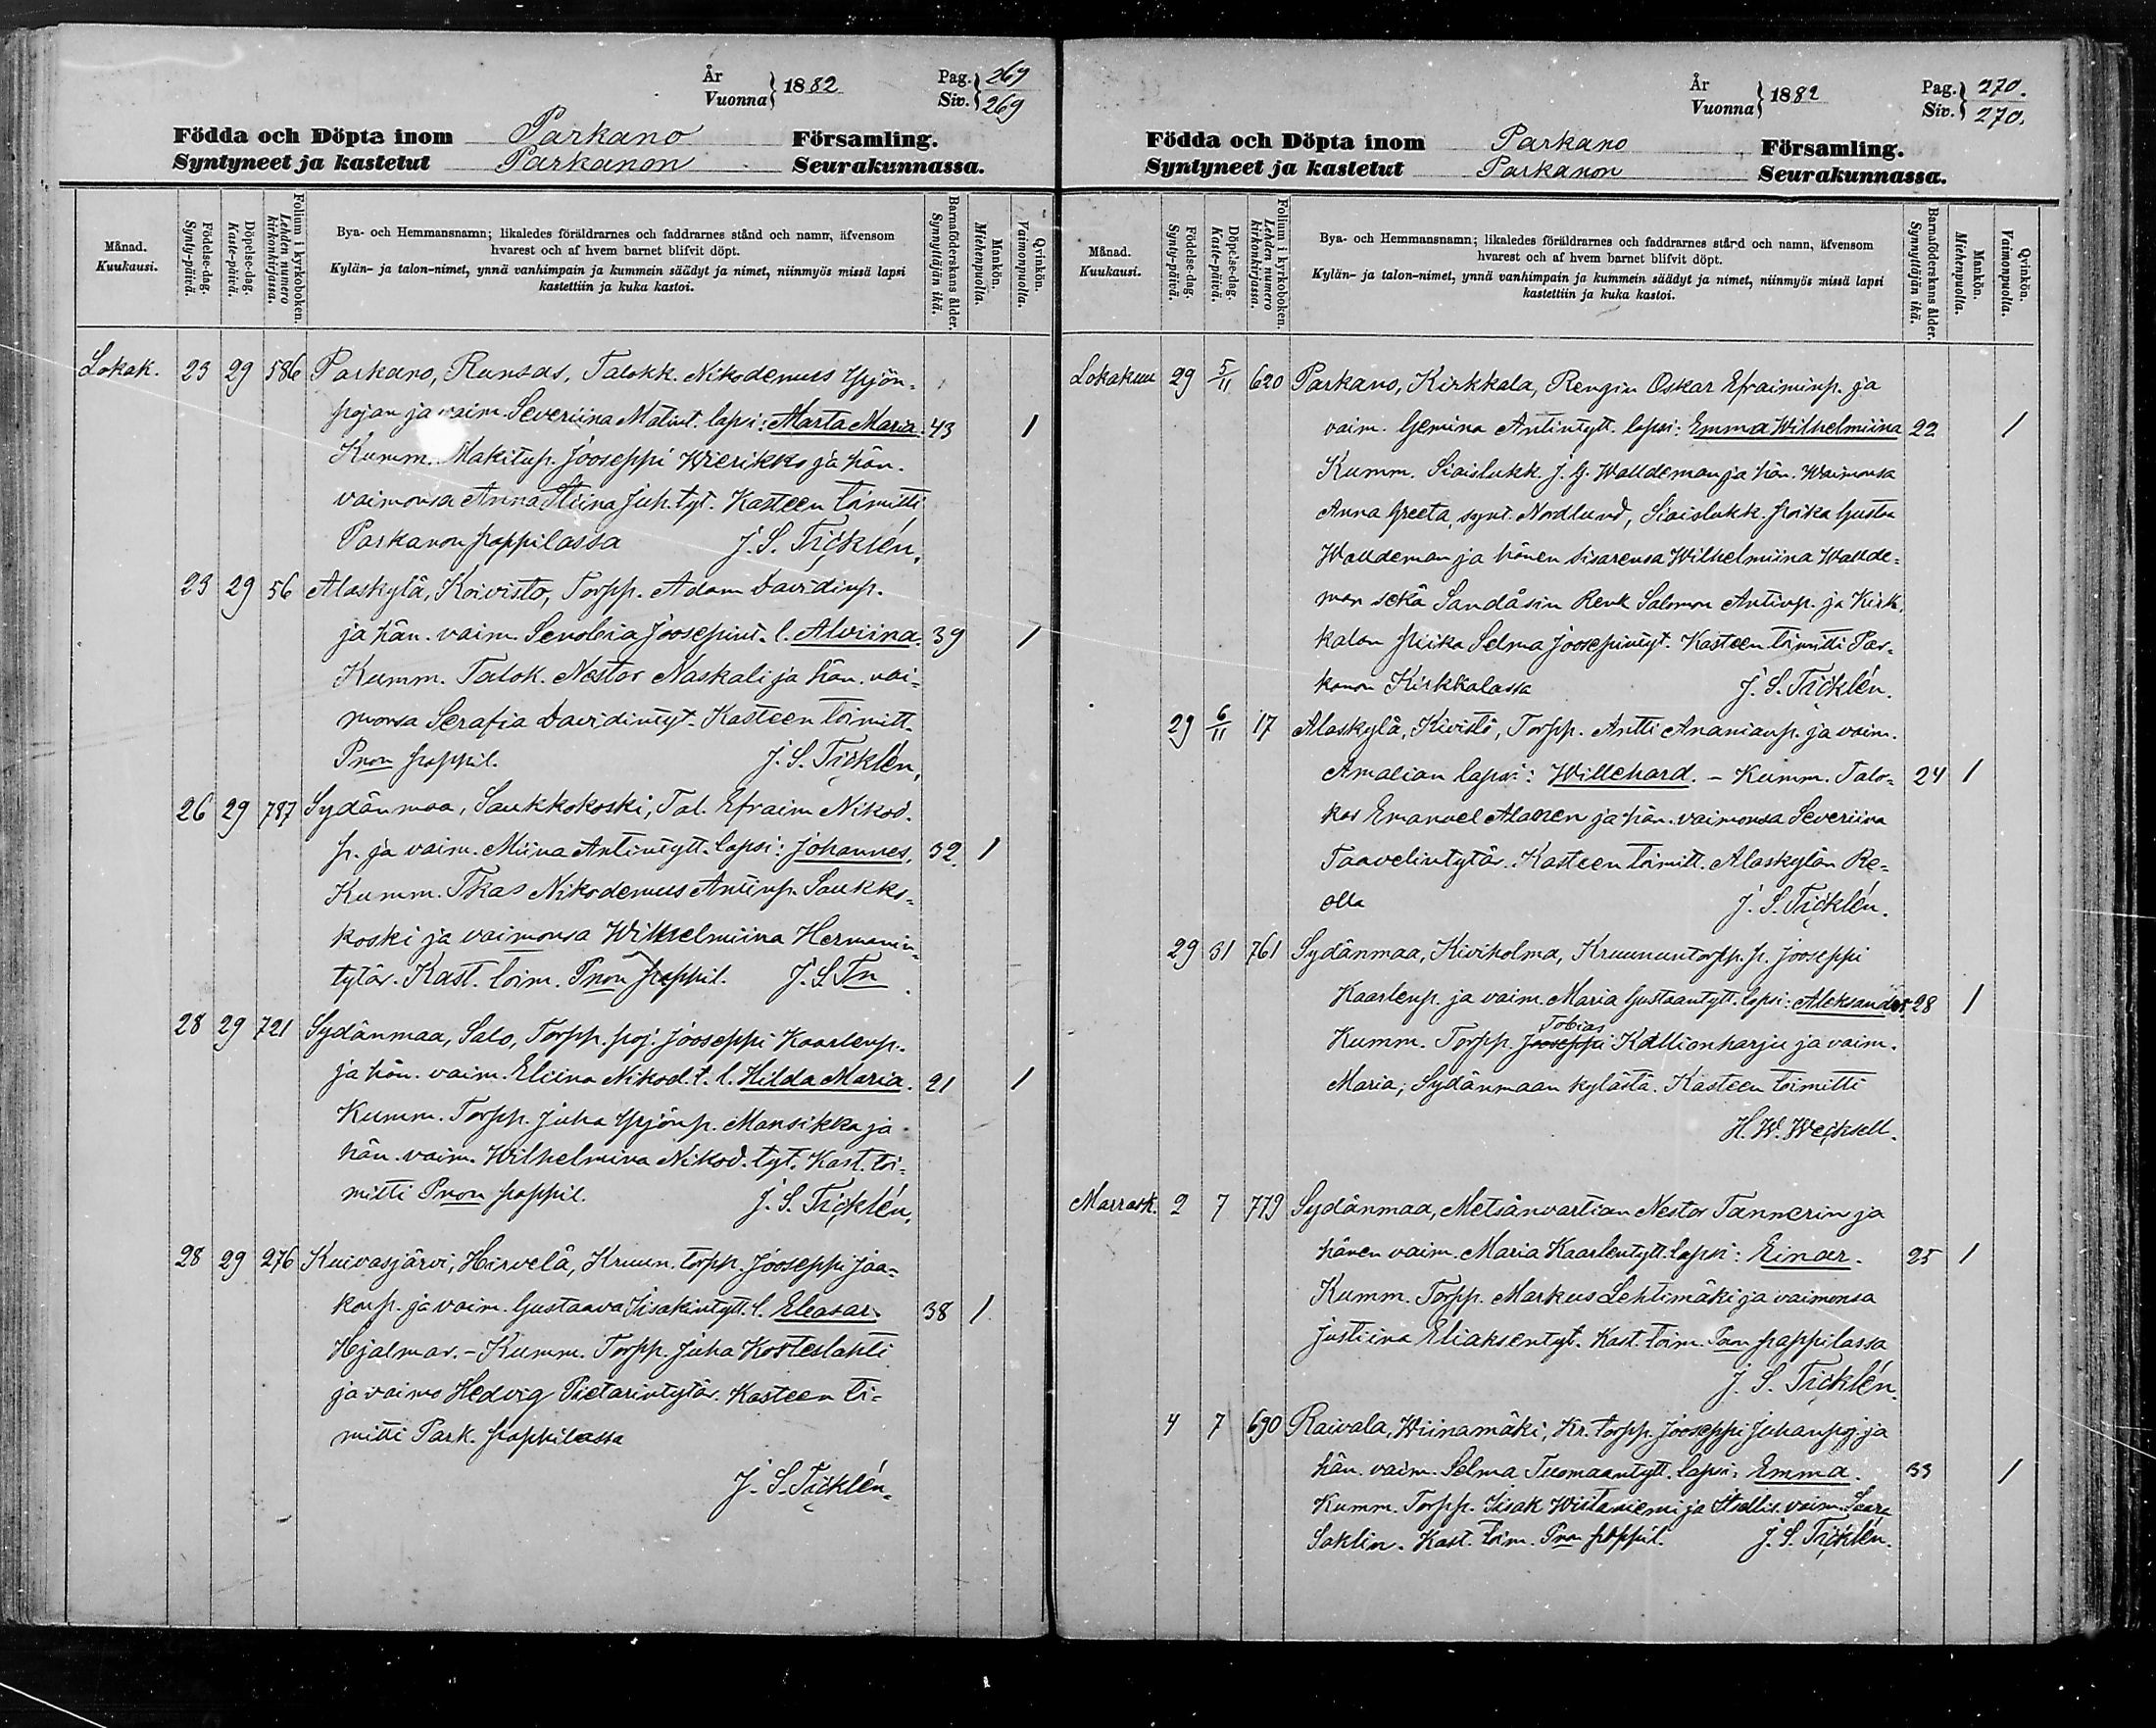 År
Vuonna } 1882
Pag. 269
Siv. 269
Födda och Döpta inom Parkano Församling.
Syntyneet ja kastetut Parkanon Seurakunnassa.
Månad.
Kuukausi.
Födelse-dag.
Synty-päivä.
Döpelse-dag.
Kaste-päivä.
Folium i kyrkoboken.
Lehden numero
kirkonkirjassa.
Bya- och Hemmansnamn; likaledes föräldrarnes och faddrarnes stånd och namn, äfvensom
hvarest och af hvem barnet blifvit döpt.
Kylän- ja talon-nimet, ynnä vanhimpain ja kummein säädyt ja nimet, niinmyös missä lapsi
kastettiin ja kuka kastoi.
Barnaföderskans ålder.
Synnyttäjän ikä.
Mankön.
Miehenpuolia.
Qvinkön.
Vaimonpuolia.
Lokak. 23 29 586 Parkano, Runsas, Talokk. Nikodemus Yrjön-
pojan ja vaim. Severiina Matint. lapsi: Marta Maria. 43 1
Kumm. Mäkitup. Jooseppi Wierikko ja hän.
vaimonsa Anna Stiina Juh. tyt. Kasteen toimitti
Parkanon pappilassa J. S. Ticklén.
23 29 56 Alaskylä, Koivisto, Torpp. Adam Davidinp.
ja hän. vaim. Senobia Joosepint. l. Alviina. 39 1
Kumm. Talok. Nestor Naskali ja hän. vai-
monsa Serafia Davidintyt. Kasteen toimitt.
Pnon pappil. J. S. Ticklén.
26 29 787 Sydänmaa, Saukkokoski, Tal. Efraim Nikod.
p. ja vaim. Miina Antintytt. lapsi: Johannes. 32. 1
Kumm. Tkas Nikodemus Antinp. Saukko-
koski ja vaimonsa Wilhelmiina Hermanin-
tytär. Kast. toim. Pnon pappil. J. S. Tn
28 29 721 Sydänmaa, Salo, Torpp. poj. Jooseppi Kaarlenp.
ja hän. vaim. Eliina Nikod. t. l. Hilda Maria. 21 1
Kumm. Torpp. Juha Yrjönp. Mansikka ja
hän. vaim. Wilhelmina Nikod. tyt. Kast. toi-
mitti Pnon pappil. J. S. Ticklén.
28 29 276 Kuivasjärvi, Hirvelä, Kruun. torpp. Jooseppi Jaa-
konp. ja vaim. Gustaava Iisakintytt. l. Eleasar 38 1
Hjalmar. - Kumm. Torpp. Juha Kosteslahti
ja vaimo Hedvig Pietarintytär. Kasteen toi-
mitti Park. pappilassa
J. S. Ticklén.
År
Vuonna } 1882
Pag. 270.
Siv. 270.
Födda och Döpta inom Parkano Församling.
Syntyneet ja kastetut Parkanon Seurakunnassa.
Månad.
Kuukausi.
Födelse-dag.
Synty-päivä.
Döpelse-dag.
Kaste-päivä.
Folium i kyrkoboken.
Lehden numero
kirkonkirjassa.
Bya- och Hemmansnamn; likaledes föräldrarnes och faddrarnes stånd och namn, äfvensom
hvarest och af hvem barnet blifvit döpt.
Kylän- ja talon-nimet, ynnä vanhimpain ja kummein säädyt ja nimet, niinmyös missä lapsi
kastettiin ja kuka kastoi.
Barnaföderskans ålder.
Synnyttäjän ikä.
Mankön.
Miehenpuolia.
Qvinkön.
Vaimonpuolia.
Lokakuu 29 5/11 620 Parkano, Kirkkala, Rengin Oskar Efraiminp. ja
vaim. Gemina Antintytt. lapsi: Emma Wilhelmiina 22 1
Kumm. Siaislukk. J. G. Walldeman ja hän. Waimonsa
Anna Greeta, synt. Nordlund, Siaislukk. poika Gustav
Walldeman ja hänen sisarensa Wilhelmiina Wallde-
man sekä Sandåsin Renk Salomon Antinp. ja Kirk-
kalan piika Selma Joosepintyt. Kasteen toimitti Par-
kanon Kirkkalassa J. S. Ticklén.
29 6/11 17 Alaskylä, Kivistö, Torpp. Antti Ananianp. ja vaim.
Amalian lapsi: Willehard. - Kumm. Talo- 24 1
kas Emanuel Alanen ja hän. vaimonsa Severiina
Taavelintytär. Kasteen toimitt. Alaskylän Re-
olla J. S. Ticklén.
29 31 761 Sydänmaa, Kiviholma, Kruununtorpp. p. Jooseppi
Kaarlenp. ja vaim. Maria Gustaantytt. lapsi: Aleksander 28 1
Tobias
Kumm. Torpp. Jooseppi Kallionharju ja vaim.
Maria, Sydänmaan kylästä. Kasteen toimitti
H. W. Wecksell.
Marrask. 2 7 779 Sydänmaa, Metsänvartian Nestor Tannerin ja
hänen vaim. Maria Kaarlentytt. lapsi: Einar. 25 1
Kumm. Torpp. Markus Lehtimäki ja vaimonsa
Justiina Eliaksentyt. Kast. toim. Pnon pappilassa
J. S. Ticklén.
4 7 690 Raivala, Wiinamäki, Kr. torpp. Jooseppi Juhanpoj. ja
hän. vaim. Selma Tuomaantytt. lapsi: Emma. 33 1
Kumm. Torpp. Iisak Wiitaniemi ja Itsellis. vaim. Saara
Saklin. Kast. toim. Pnon pappil. J. S. Ticklén.